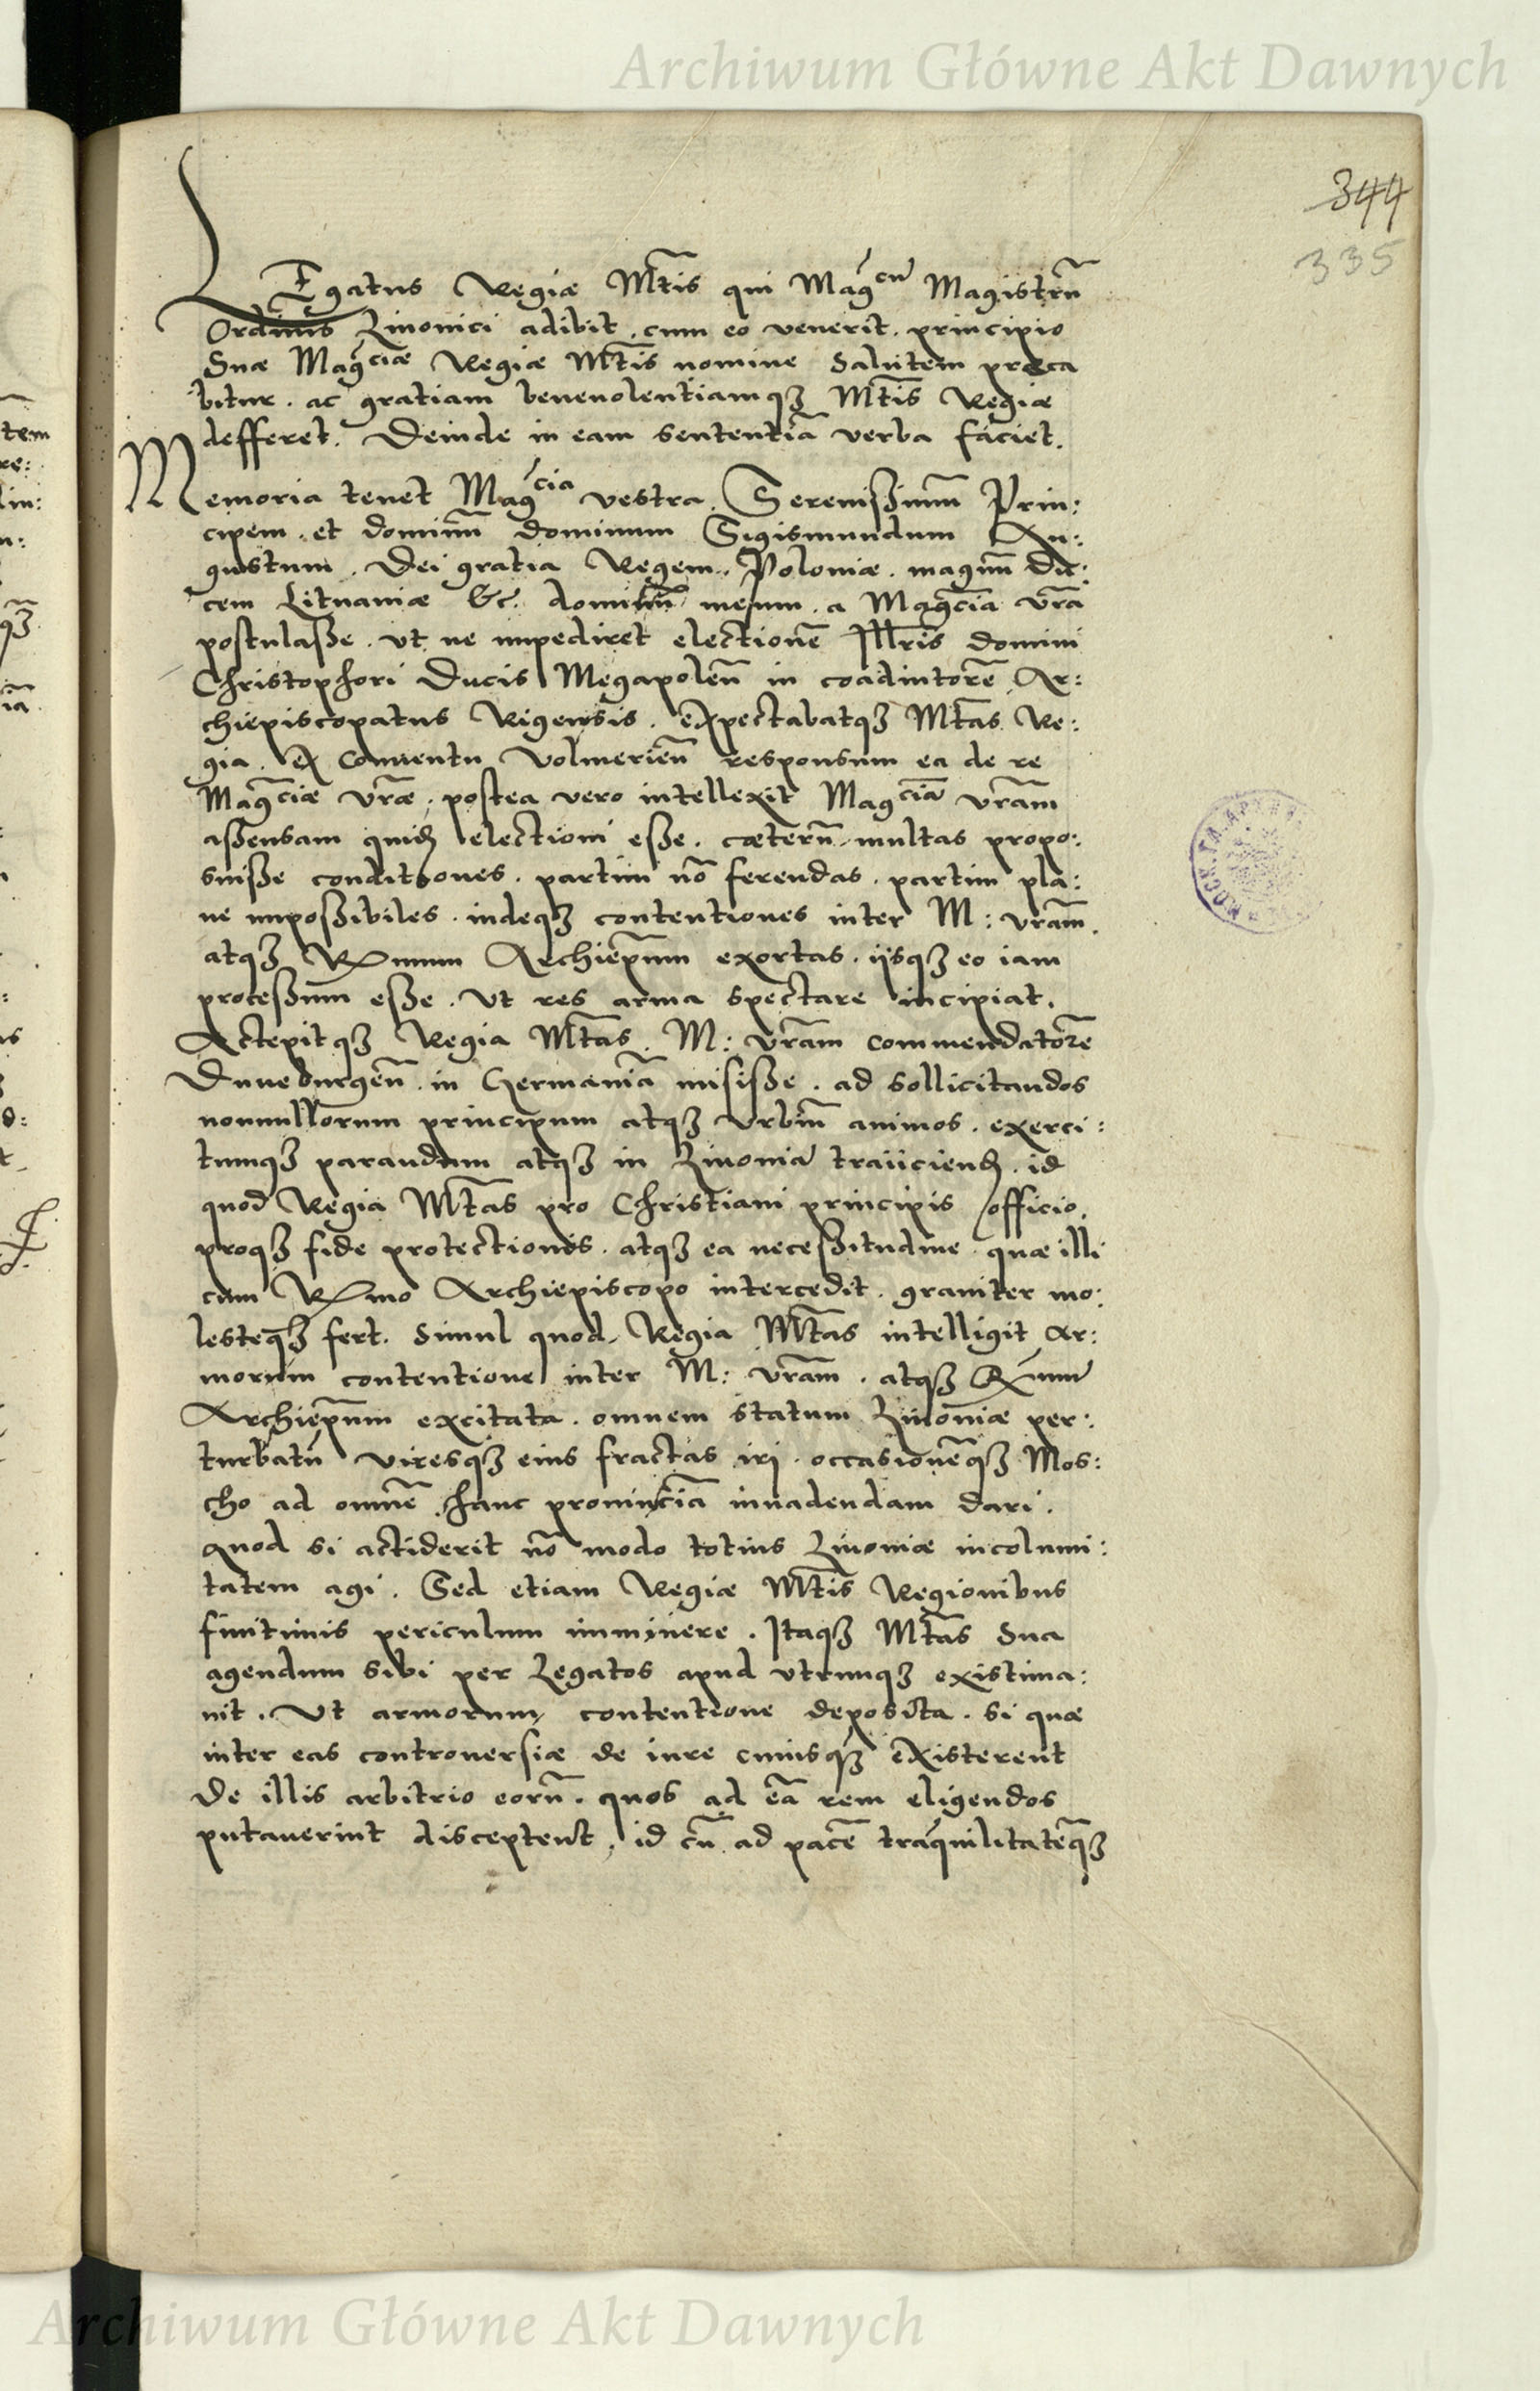 Archiwum Główne Akt Dawnych
344
335
LEgatus Regiæ Mtis qui Mag^cū Magistrū
Ordinis Liuonici adibit, cum eo venerit, principio
Suæ Mag^ciæ Regiæ Mtis nomine Salutem preca
bitur. ac gratiam beneuolentiamqʒ Mtis Regiæ
defferet. Deinde in eam sententiā verba faciet.
Memoria tenet Mag^cia vestra, Serenißimum Prin:
cipem et dominū dominum Sigismundum Au:
gustum, Dei gratia Regem Poloniæ, magnū Du:
cem Lituaniæ &c. dominū meum, a Mag^cia vrā
postulaße. Vt ne impediret electionē Illris domini
Christophori Ducis Megapoleñ in coadiutorē Ar:
chiepiscopatus Rigensis. Expectabatqʒ Mtas Re:
gia, ex Conuentu Volmerieñ responsum ea de re
Mag^ciæ vræ, postea vero intellexit Mag^ciā vram
aßensam quidē electioni eße. cæterū multas propo:
suiße conditiones. partim nō ferendas. partim pla:
ne impoßibiles. indeqʒ contentiones inter M: vram
atqʒ Rmum Archiepūm exortas. iisqʒ eo iam
proceßum eße. Vt res arma spectare incipiat.
Accepitqʒ Regia Mtas. M: vram Commendatorē
Duneburgeñ in Germaniā misiße. ad sollicitandos
nonnullorum principum atqʒ vrbiū animos. exerci:
tumqʒ parandum atqʒ in Liuoniā traiiciendū. id
quod Regia Mtas pro Christiani principis officio,
proqʒ fide protectionis. atqʒ ea neceßitudine quæ illi
cum Rmo Archiepiscopo intercedit. grauiter mo:
lesteqʒ fert. Simul quod Regia Mtas intelligit Ar:
morum contentione inter M: vram. atqʒ Rmum
Archiepūm excitata. omnem statum Liuoniæ per:
turbatū viresqʒ eius fractas iri. occasionēqʒ Mos:
cho ad omnē hanc prouinciā inuadendam dari.
quod si acciderit nō modo totius Liuoniæ incolumi:
tatem agi. Sed etiam Regiæ Mtis Regionibus
finitimis periculum imminere. Itaqʒ Mtas Sua
agendum sibi per Legatos apud vtrumqʒ existima:
uit. Vt armorum contentione deposita. si quæ
inter eas controuersiæ de iure cuiusqʒ existerent
De illis arbitrio eorū. quos ad eā rem eligendos
putauerint disceptent, id cū ad pacē trāquilitatēqʒ
Archiwum Główne Akt Dawnych